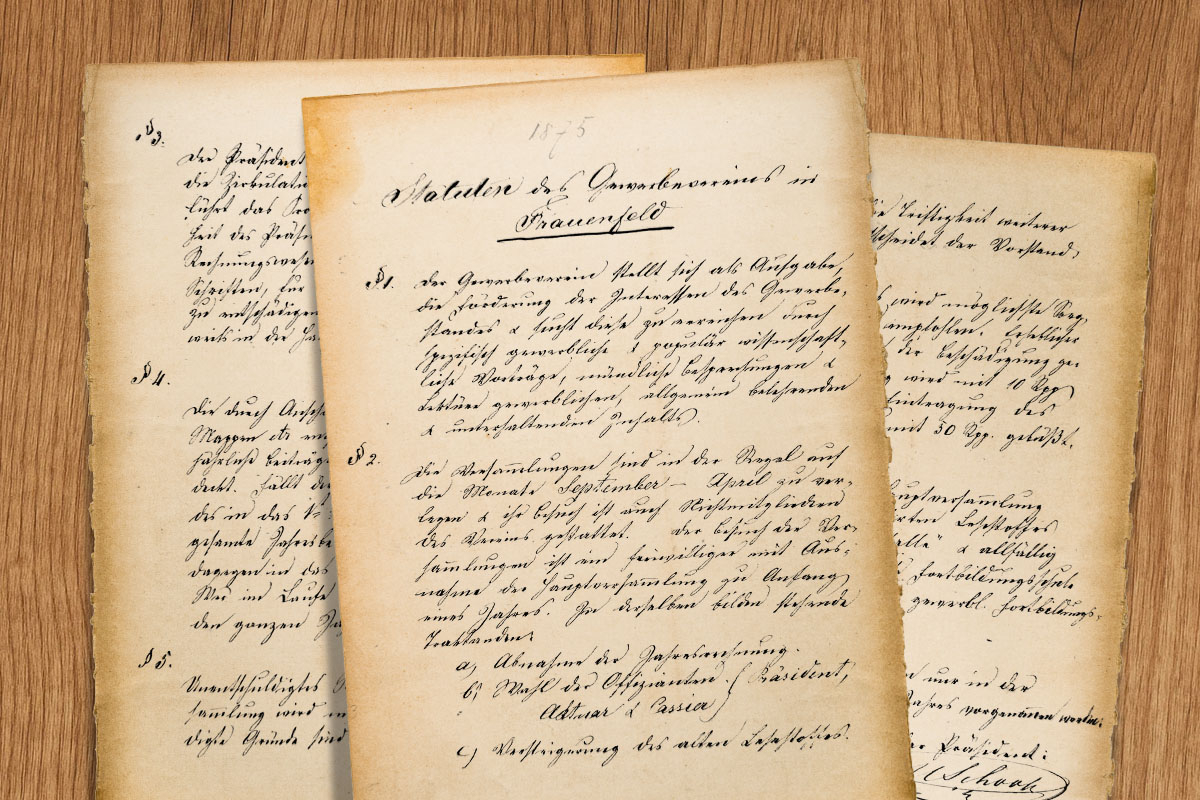 § 3.
Der Präsident
die Zirkulatio
führt das Pro
heit des Präsi
Rechnungswese
Schriften, für
zu entschädigen
weils in der Ha
§ 4.
Die durch Ansch
Mappen etc en
jährliche Beiträge
deckt. Fällt de
des in das
gesamte Jahresbe
dagegen in das
Wer im Laufe
den ganzen Ja
§ 5.
Unentschuldigtes
sammlung wird m
digte Gründe sind
1875
Statuten des Gewerbevereins in
Frauenfeld
§ 1. Der Gewerbeverein stellt sich als Aufgabe,
die Förderung der Interessen des Gewerbe-
standes & sucht diese zu erreichen durch
spezifisch gewerbliche & populär wissenschaft-
liche Vorträge, mündliche Besprechungen &
Lektüre gewerblichen, allgemein belehrenden
& unterhaltenden Inhalts.
§ 2. Die Versammlungen sind in der Regel auf
die Monate September – April zu ver-
legen & ihr Besuch ist auch Nichtmitgliedern
des Vereins gestattet. Der Besuch der Ver-
sammlungen ist ein freiwilliger mit Aus-
nahme der Hauptversammlung zu Anfang
eines Jahres. In derselben bilden stehende
Traktanden:
a) Abnahme der Jahresrechnung.
b) Wahl der Offizianten. (Präsident,
Aktuar & Cassier)
c) Versteigerung des alten Lesestoffes.
die Triftigkeit weiterer
tscheidet der Vorstand.
wird möglichste Sorg
empfohlen.
der Beschädigung ge-
wird mit 10 Rpp
Eintragung des
mit 50 Rpp. gebüßt.
auptversammlung
rten Lesestoffes
alle" & allfällig
Fortbildungsschule
gewerbl. Fortbildungs-
nur in der
Jahres vorgenommen werden.
er Präsident:
Schoch